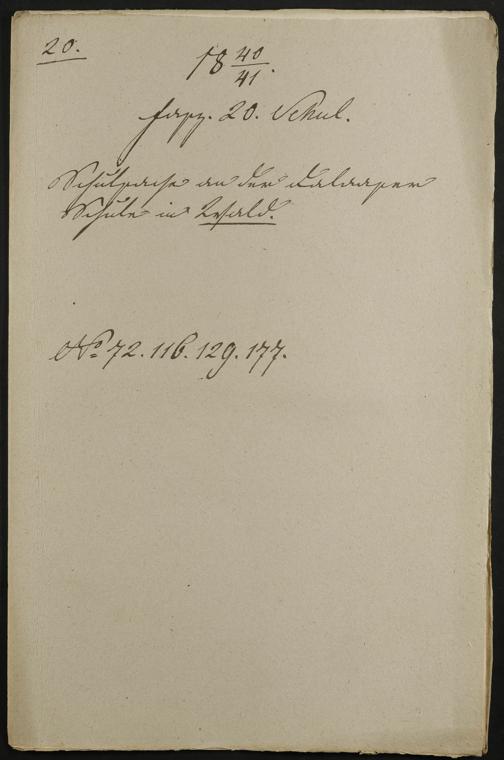 20.
18 40/41.
Fasz. 20. Schul.
Schulsache an der
Schule in Wald.
No. 72. 116. 129. 177.